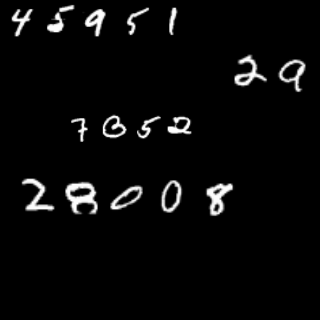 45951
29
7052
28008